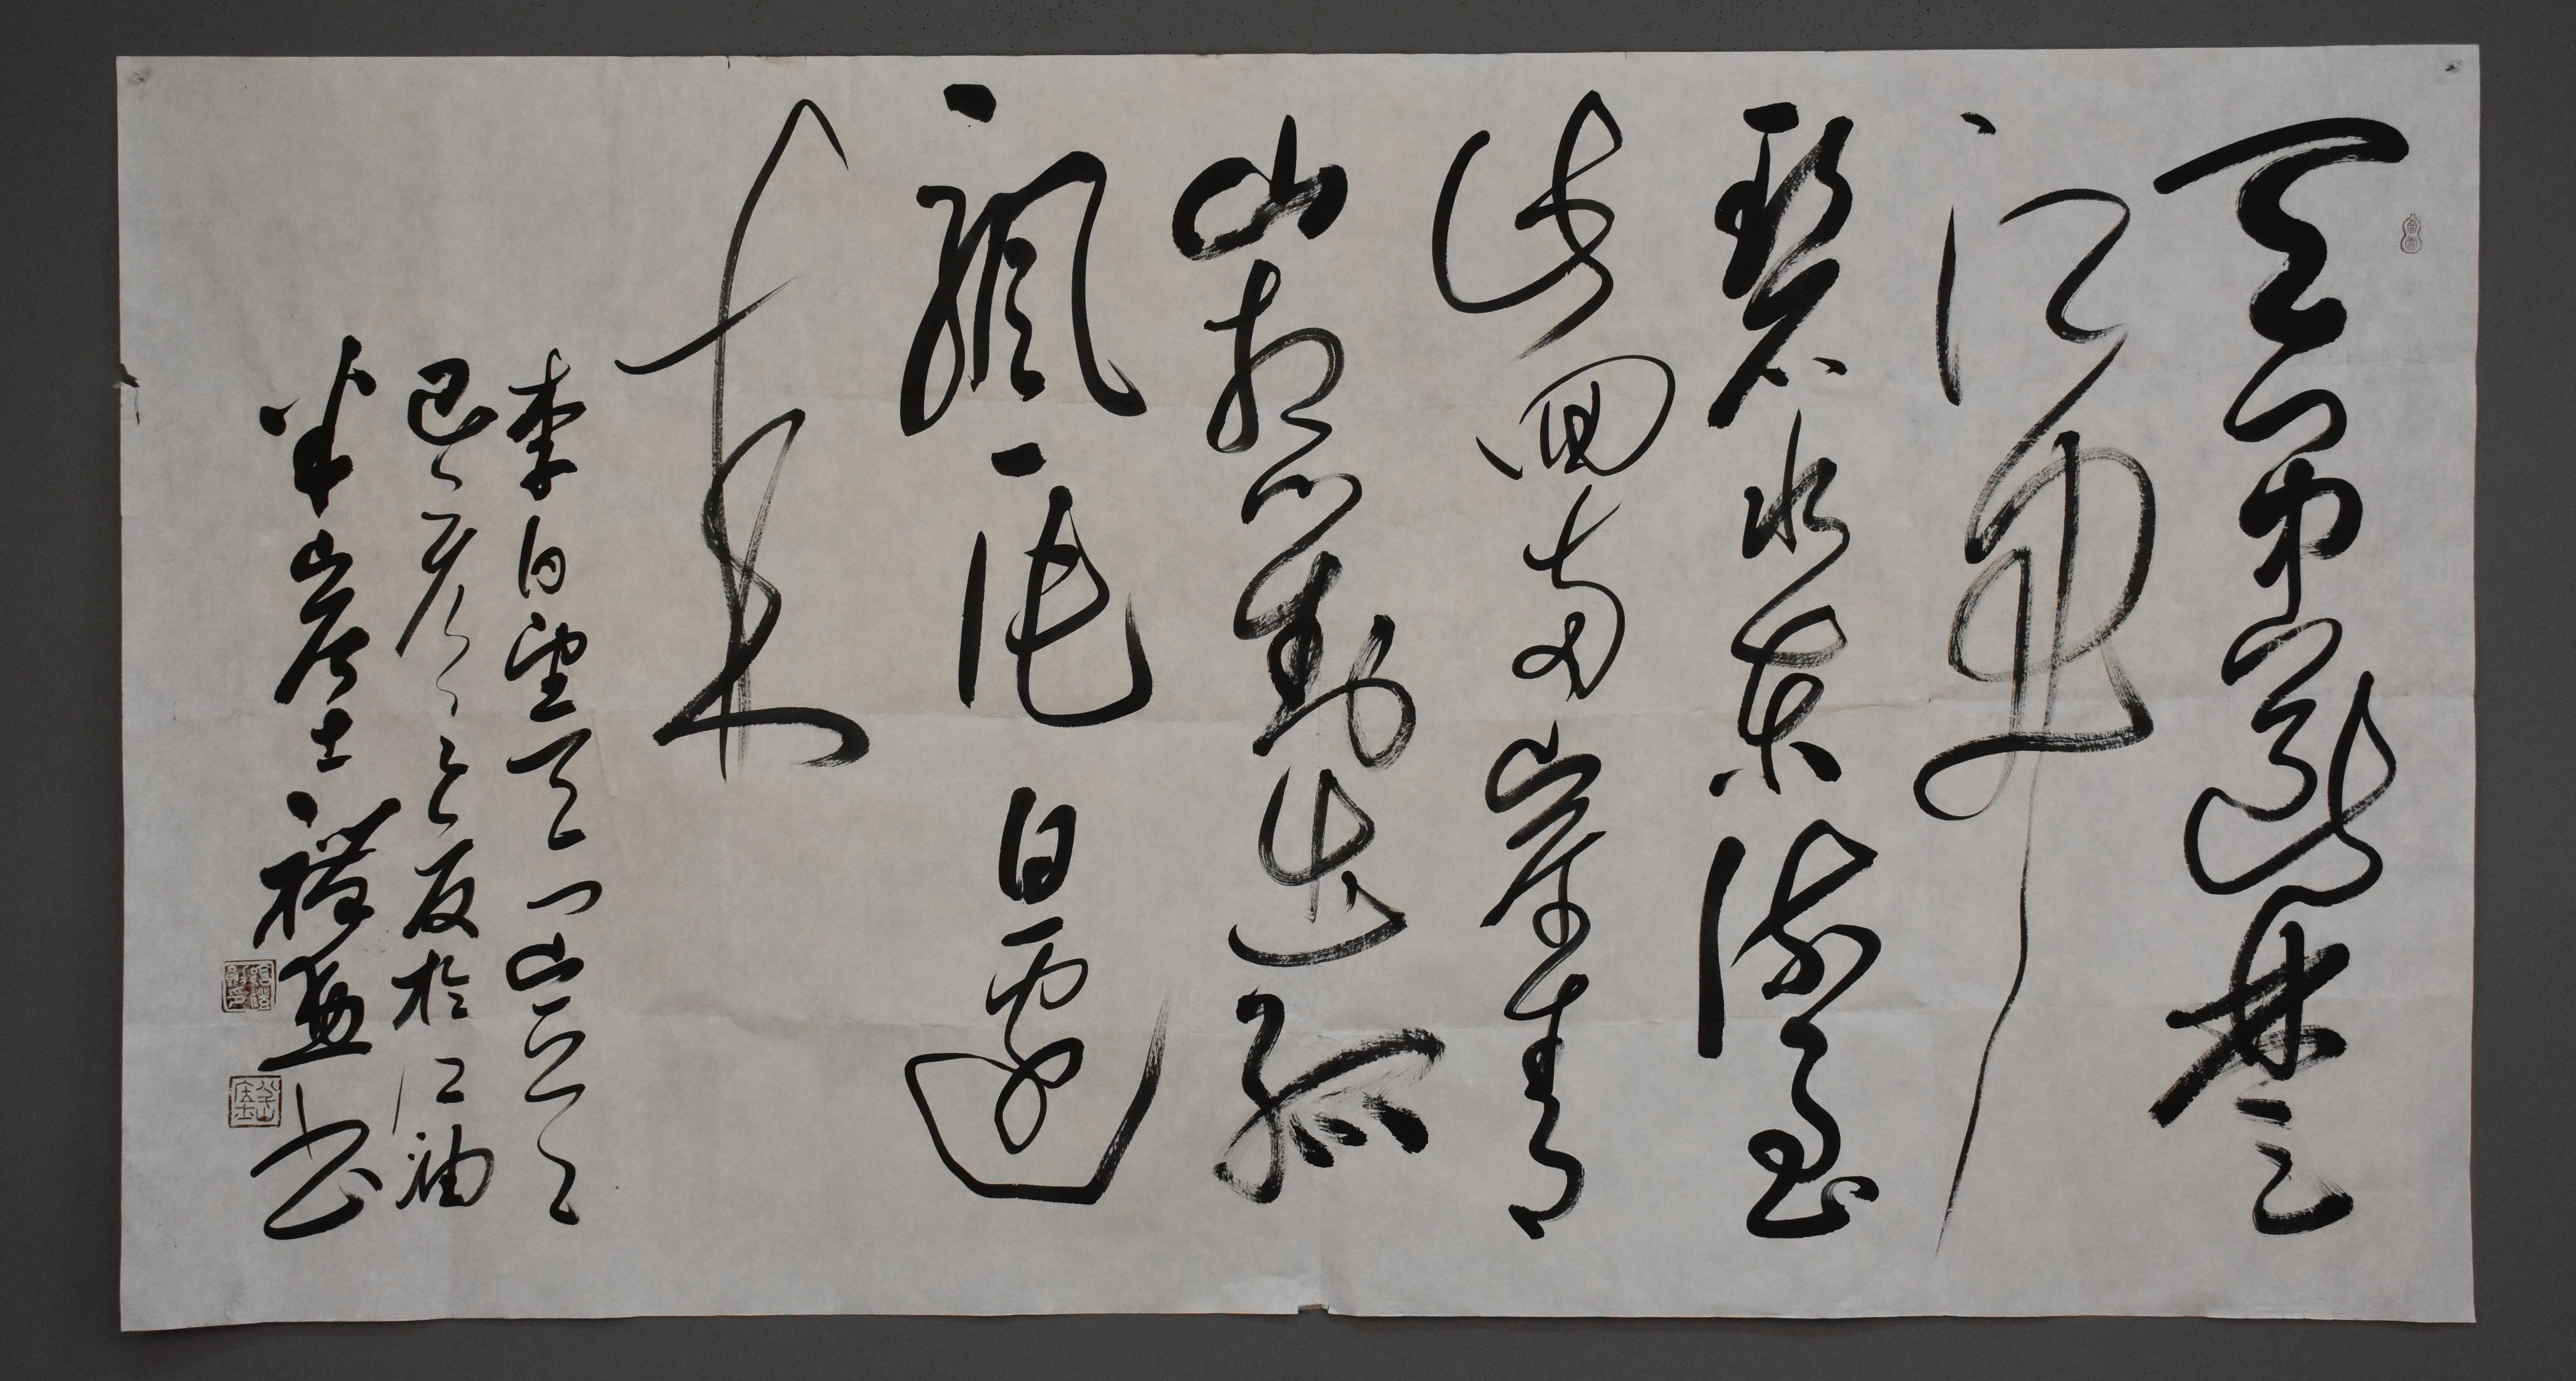 天門中斷楚
江開
碧水東流至
此回兩岸青
山相對出孤
帆一片日邊
來
李白望天門山
夏於江油
半崖士 書